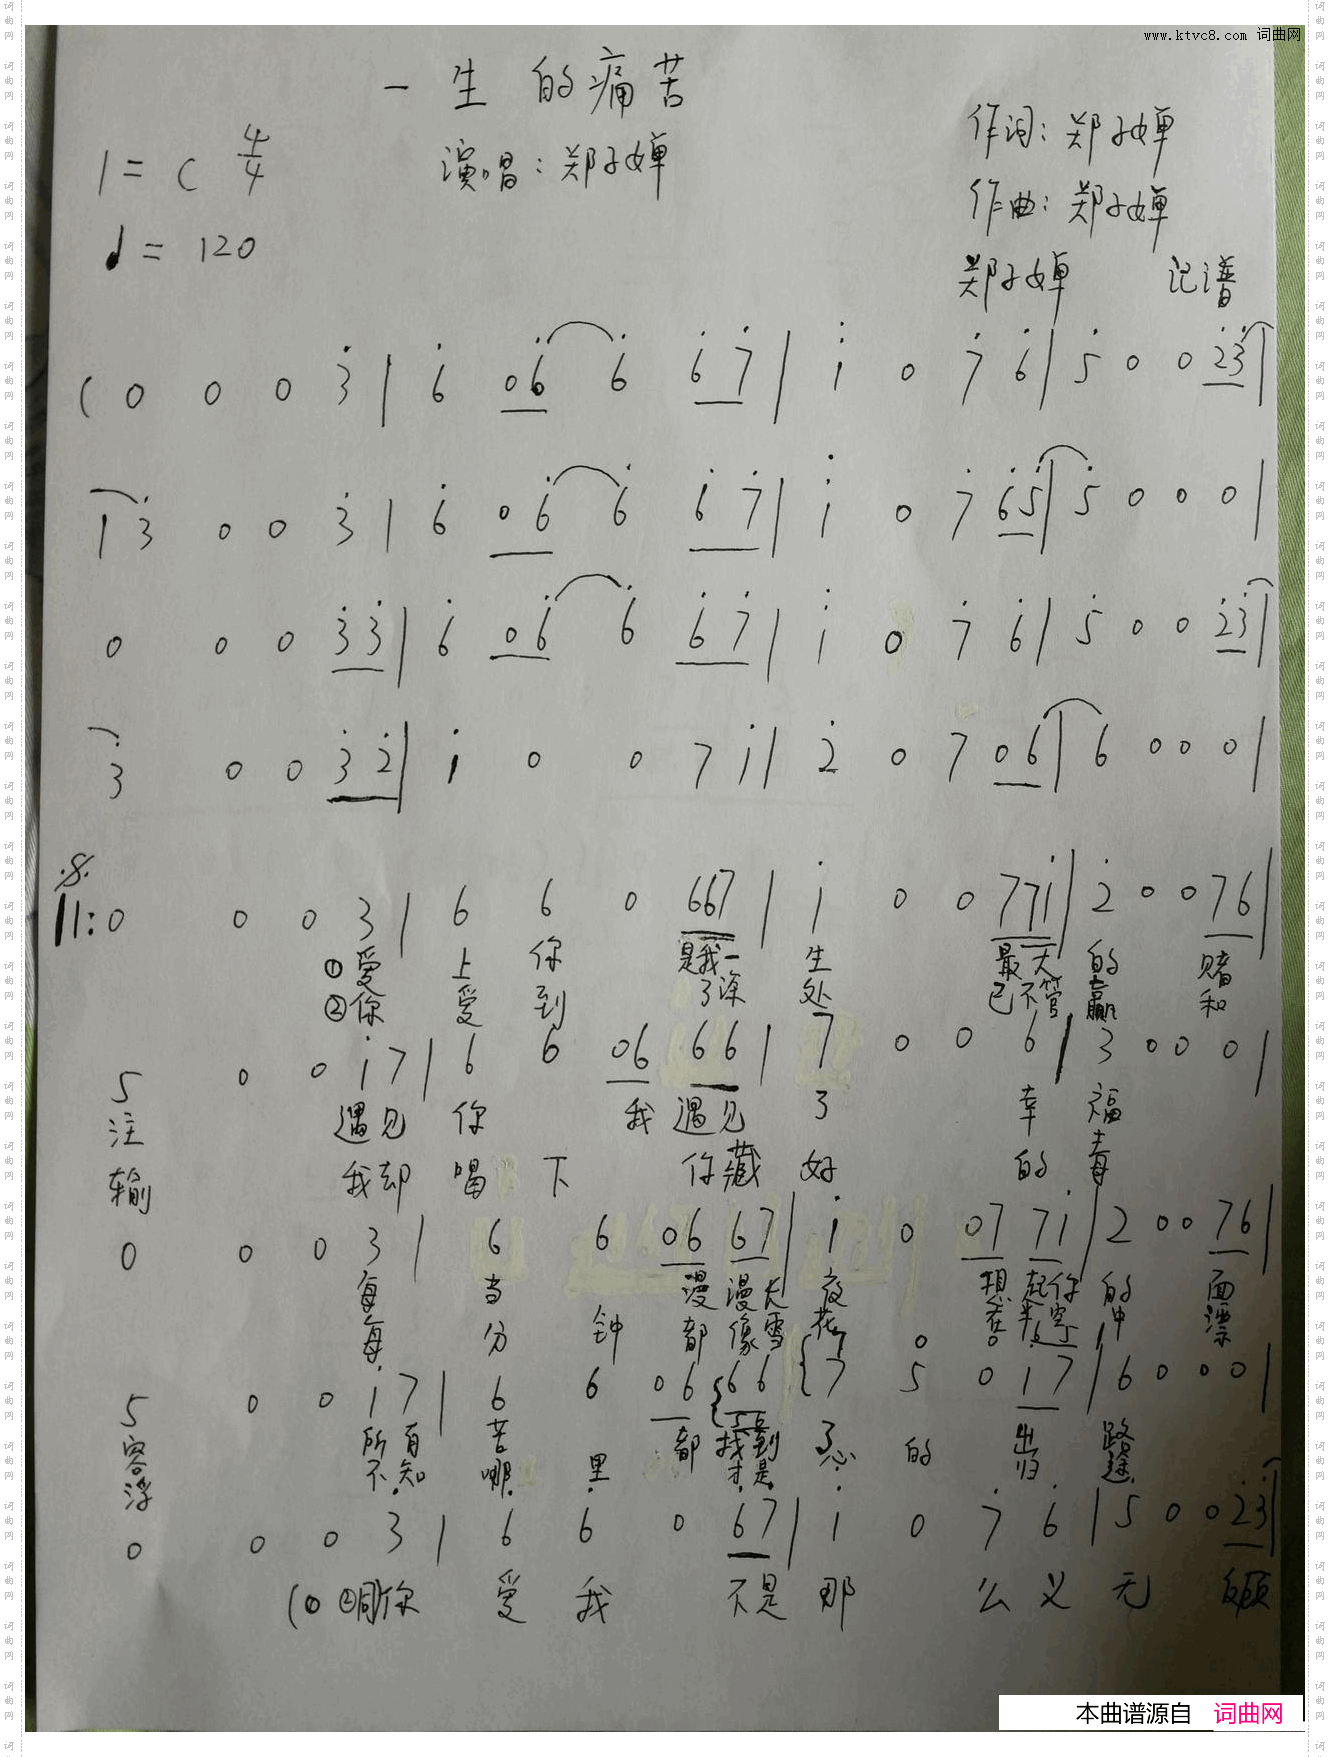 www.ktvc8.com 词曲网
一生的痛苦
1=C 4/4
演唱：郑子婵
作词：郑子婵
♩=120
作曲：郑子婵
郑子婵 记谱
(0 0 0 3̇ | 6̇ 06̇ 6̇ 6̇7̇ | i̇ 0 7̇ 6̇ | 5̇ 0 0 2̇3̇ |
| 3̇ 0 0 3̇ | 6̇ 06̇ 6̇ 6̇7̇ | i̇ 0 7̇ 6̇5̇ | 5̇ 0 0 0 |
0 0 0 3̇3̇ | 6̇ 06̇ 6̇ 6̇7̇ | i̇ 0 7̇ 6̇ | 5̇ 0 0 2̇3̇ |
3̇ 0 0 3̇2̇ | i 0 0 7 i | 2̇ 0 7 06 | 6 0 0 0 |
||: 0 0 0 3 | 6 6 0 667 | i 0 0 77i | 2̇ 0 0 76 |
①爱 上 你 是我一 生 最大 的 赌
②你 爱 到 了深 处 已不管 赢 和
5 0 0 i7 | 6 6 06 66 | 7 0 0 6 | 3 0 0 0 |
注 遇见 你 我 遇见 了 幸 福
输 我却 喝 下 你藏 好 的 毒
0 0 0 3 | 6 6 06 67 | i 0 07 7i | 2 0 0 76 |
每 当 漫 漫长 夜 想 起你 的 面
每 分 钟 都 像雪 花 在 半空 中 漂
5 0 0 i7 | 6 6 06 66 | 7 5 0 17 | 6 0 0 0 |
容 所有 苦 都 找到 了 出 路
浮 不知 哪 里 才是 心 的 归 途
0 0 0 3 | 6 6 0 67 | i 0 7̇ 6̇ | 5 0 0 2̇3̇ |
(① ②同)你 爱 我 不是 那 么 义 无 反顾
本曲谱源自 词曲网